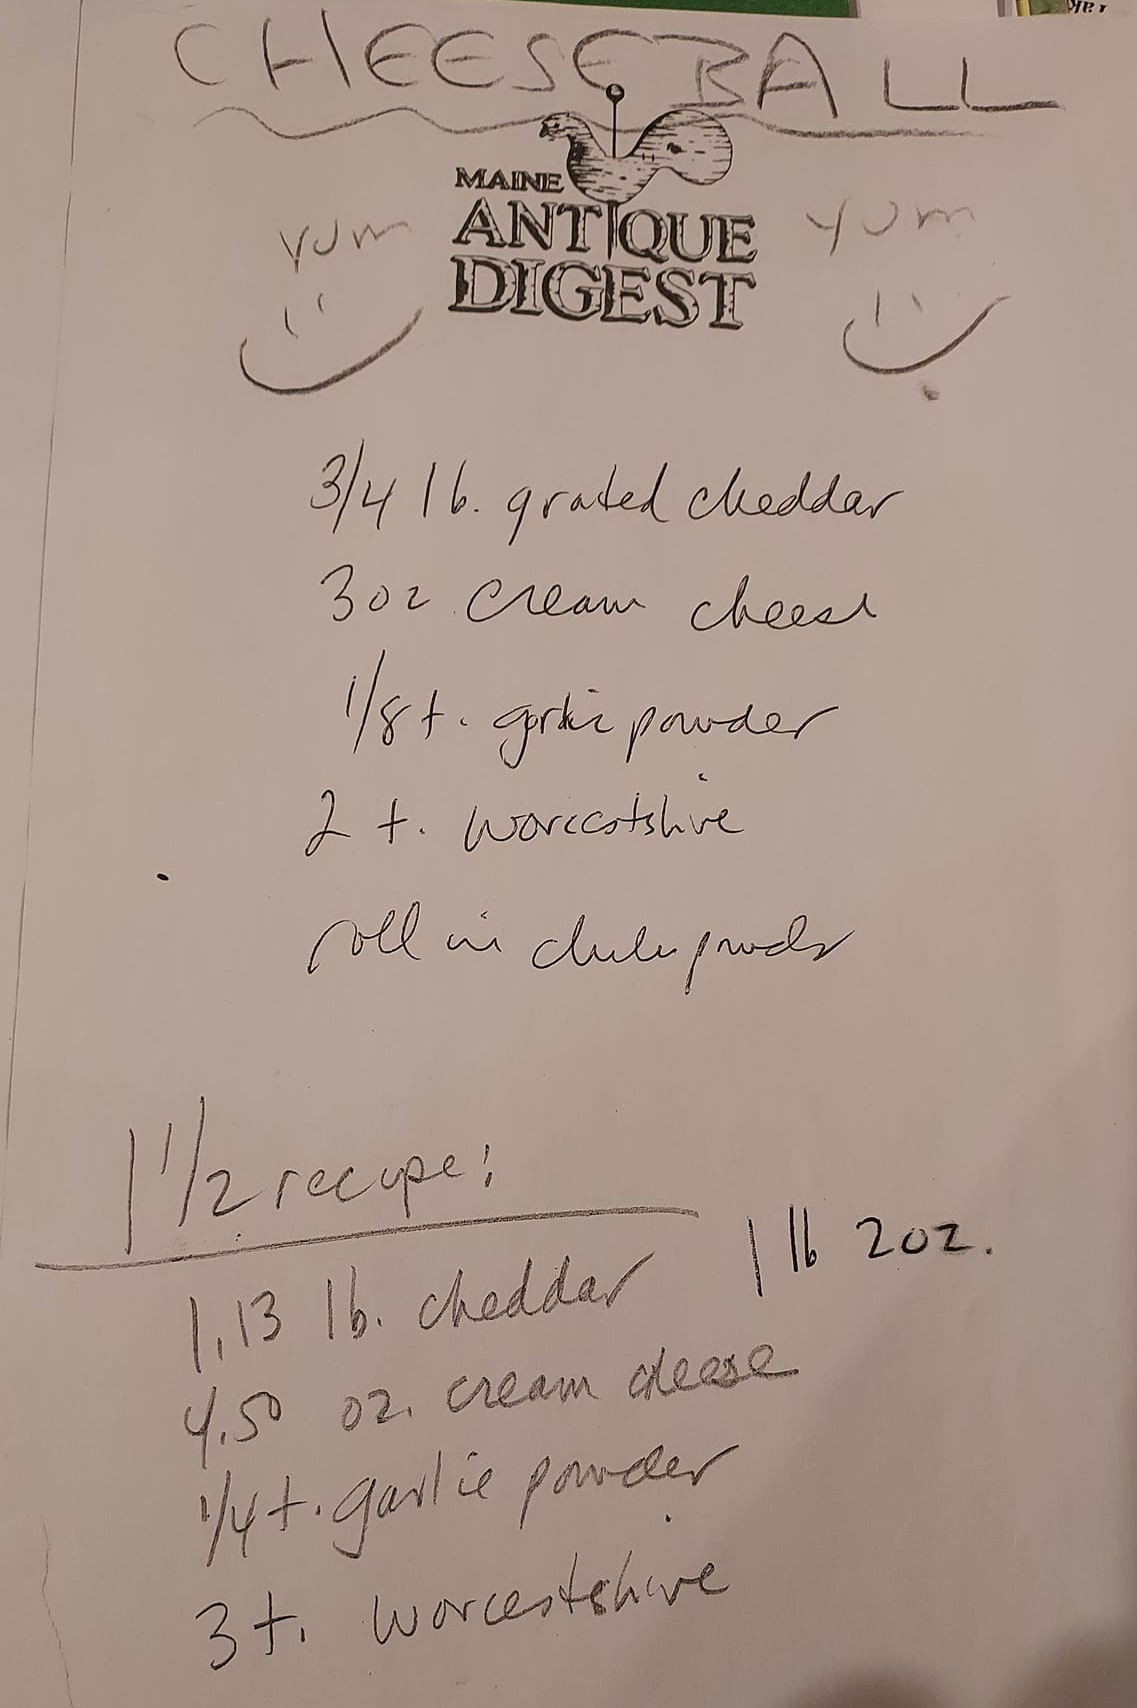 CHEESE BALL
MAINE
ANTIQUE
DIGEST
YUM
YUM
3/4 lb. grated cheddar
3 oz cream cheese
1/8 t. garlic powder
2 t. worcestshire
roll in chile powder
1 1/2 recipe:
1 lb 2oz.
1.13 lb. cheddar
4.50 oz. cream cheese
1/4 t. garlic powder
3 t. worcestshire